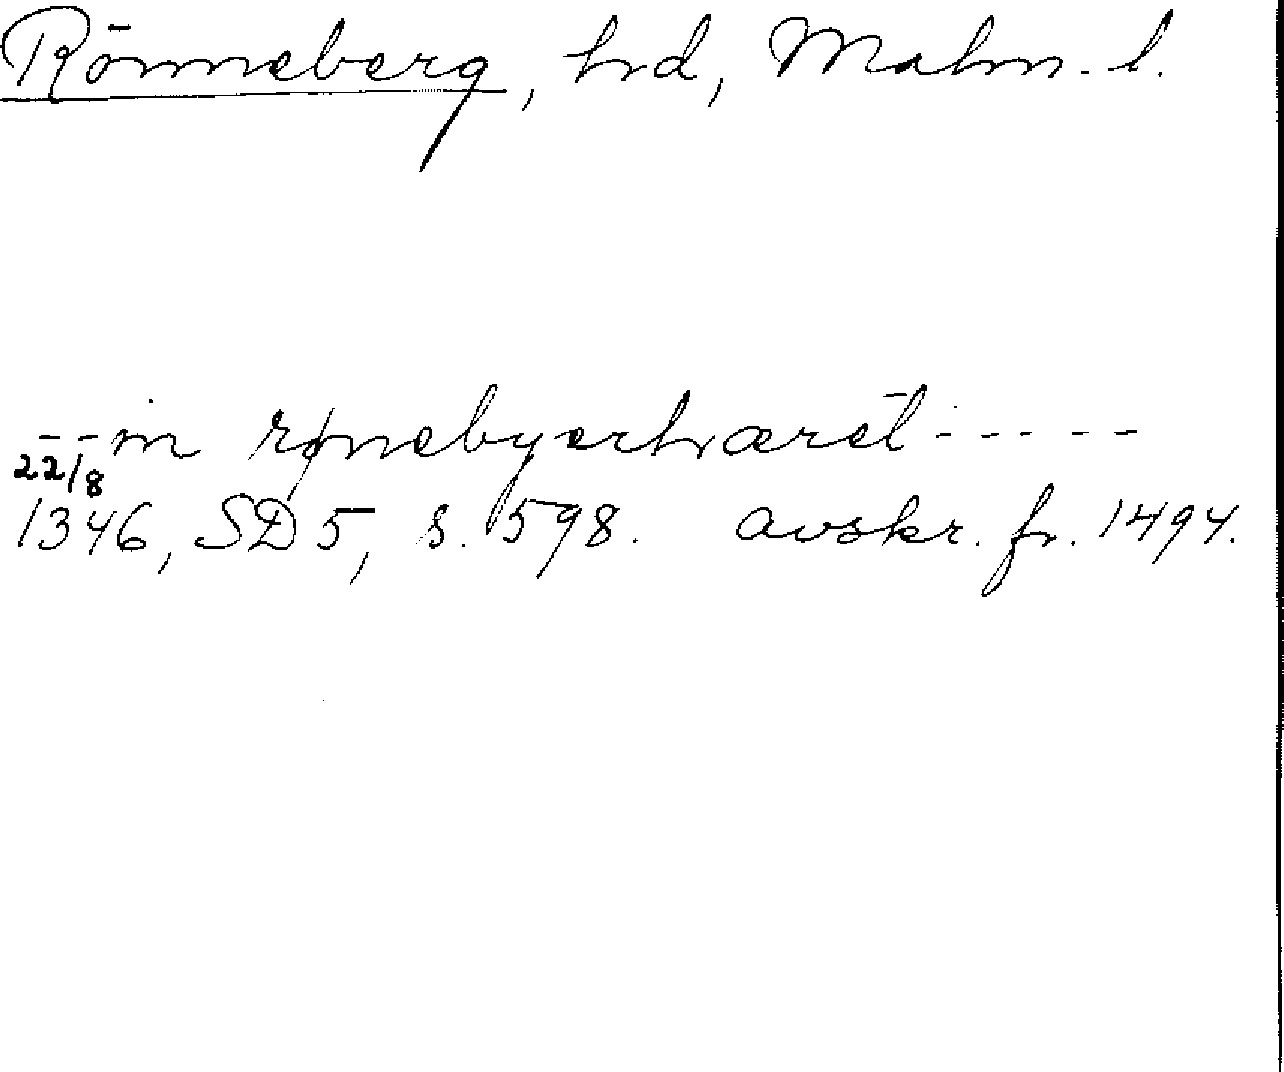 Rönneberg, hd, Malm. l.
-- in rønebyerhæret -----
22/8
1346, SD 5, s. 598. avskr. fr. 1494.